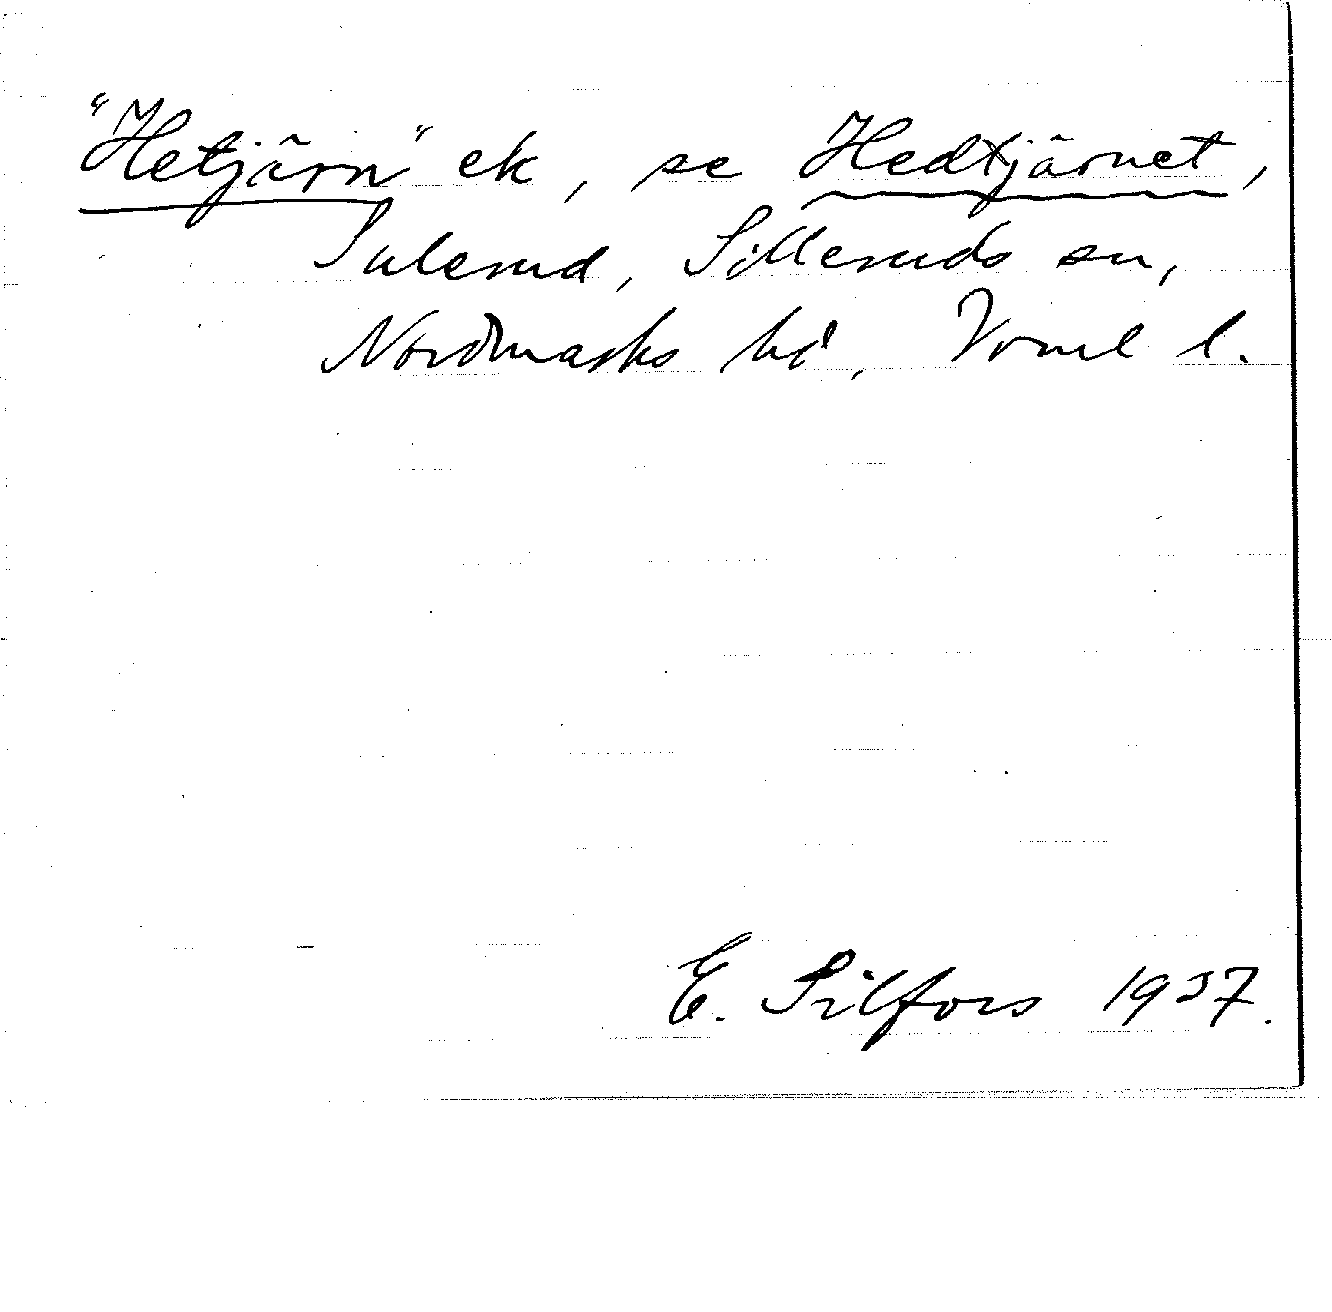 "Hetjärn" ek, se Hedtjärnet,
Sulerud, Silleruds sn,
Nordmarks hd, Vrml l.
E. Silfors 1937.